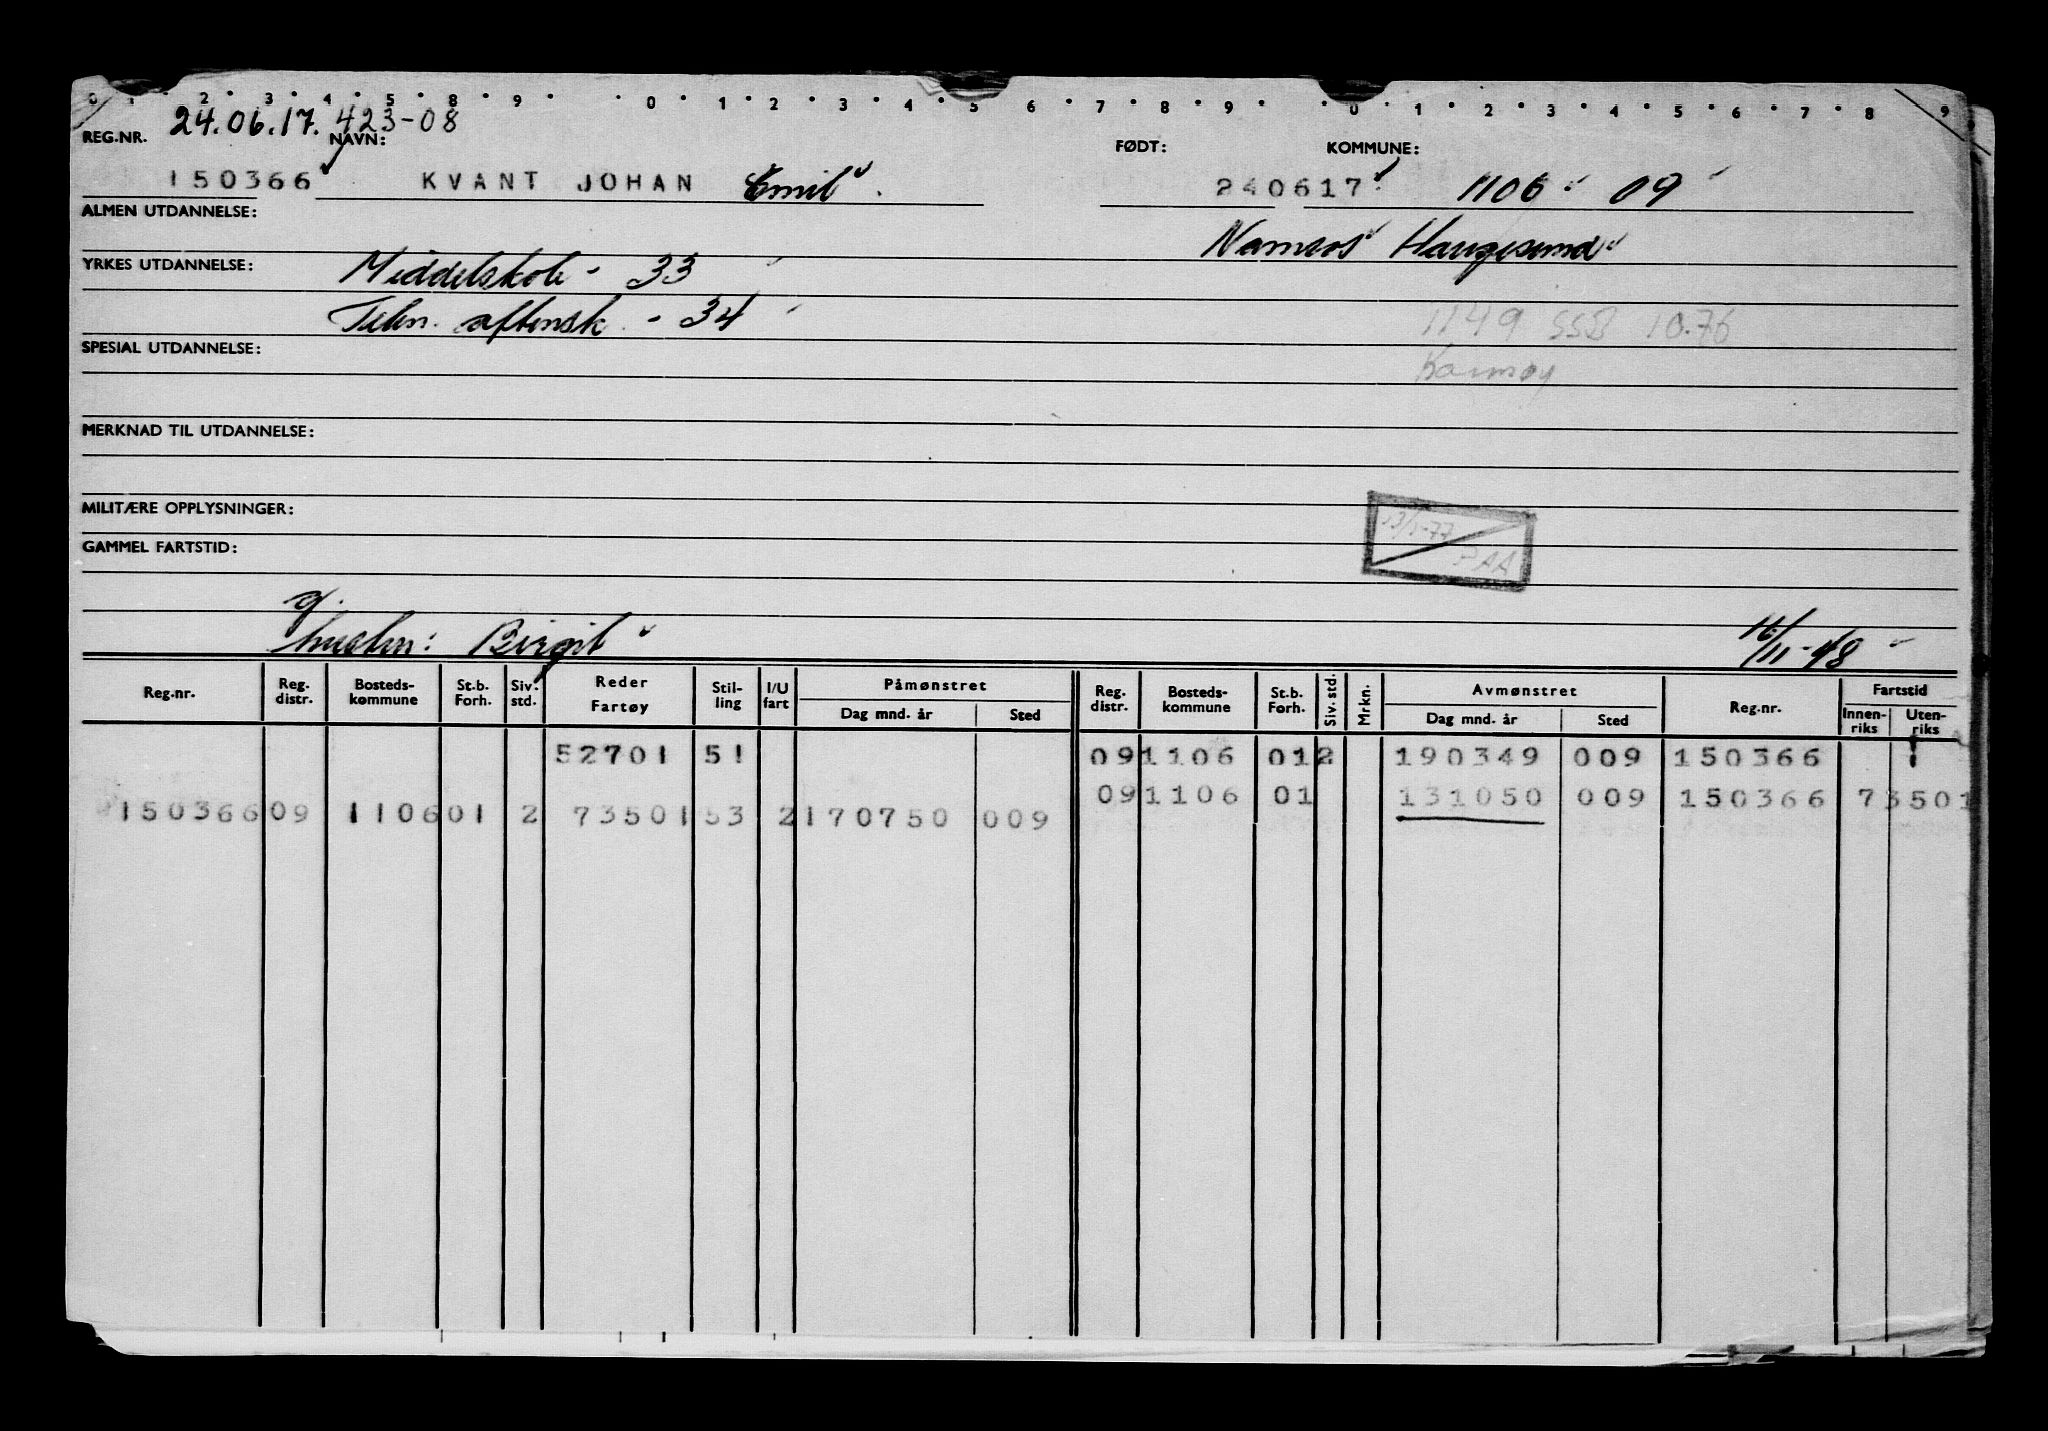 0 1 2 3 4 5 8 9 0 1 2 3 4 5 6 7 8 9 0 1 2 3 4 5 6 7 8 9
24.06.17. 423-08
REG.NR. NAVN: FØDT: KOMMUNE:
150366 KVANT JOHAN Emil. 240617 1106 09
ALMEN UTDANNELSE:
Namsos Haugesund
YRKES UTDANNELSE: Middelskole - 33
Tekn. aftensk. - 34 1149 SSB 10.76
SPESIAL UTDANNELSE:
Karmøy
MERKNAD TIL UTDANNELSE:
MILITÆRE OPPLYSNINGER:
13/1-77
GAMMEL FARTSTID:
PAA
g.
hustru: Birgit 16/11-48
Reg.nr. Reg. distr. Bosteds-kommune St.b. Forh. Siv. std. Reder Fartøy Stil-ling I/U fart Påmønstret Dag mnd. år Sted Reg. distr. Bosteds-kommune St.b. Forh. Siv. std. Mrkn. Avmønstret Dag mnd. år Sted Reg.nr. Fartstid Innen-riks Uten-riks
52701 51 09 1106 01 2 190349 009 150366 1
09 1106 01 131050 009 150366 73501
150366 09 1106 01 2 73501 53 2 170750 009